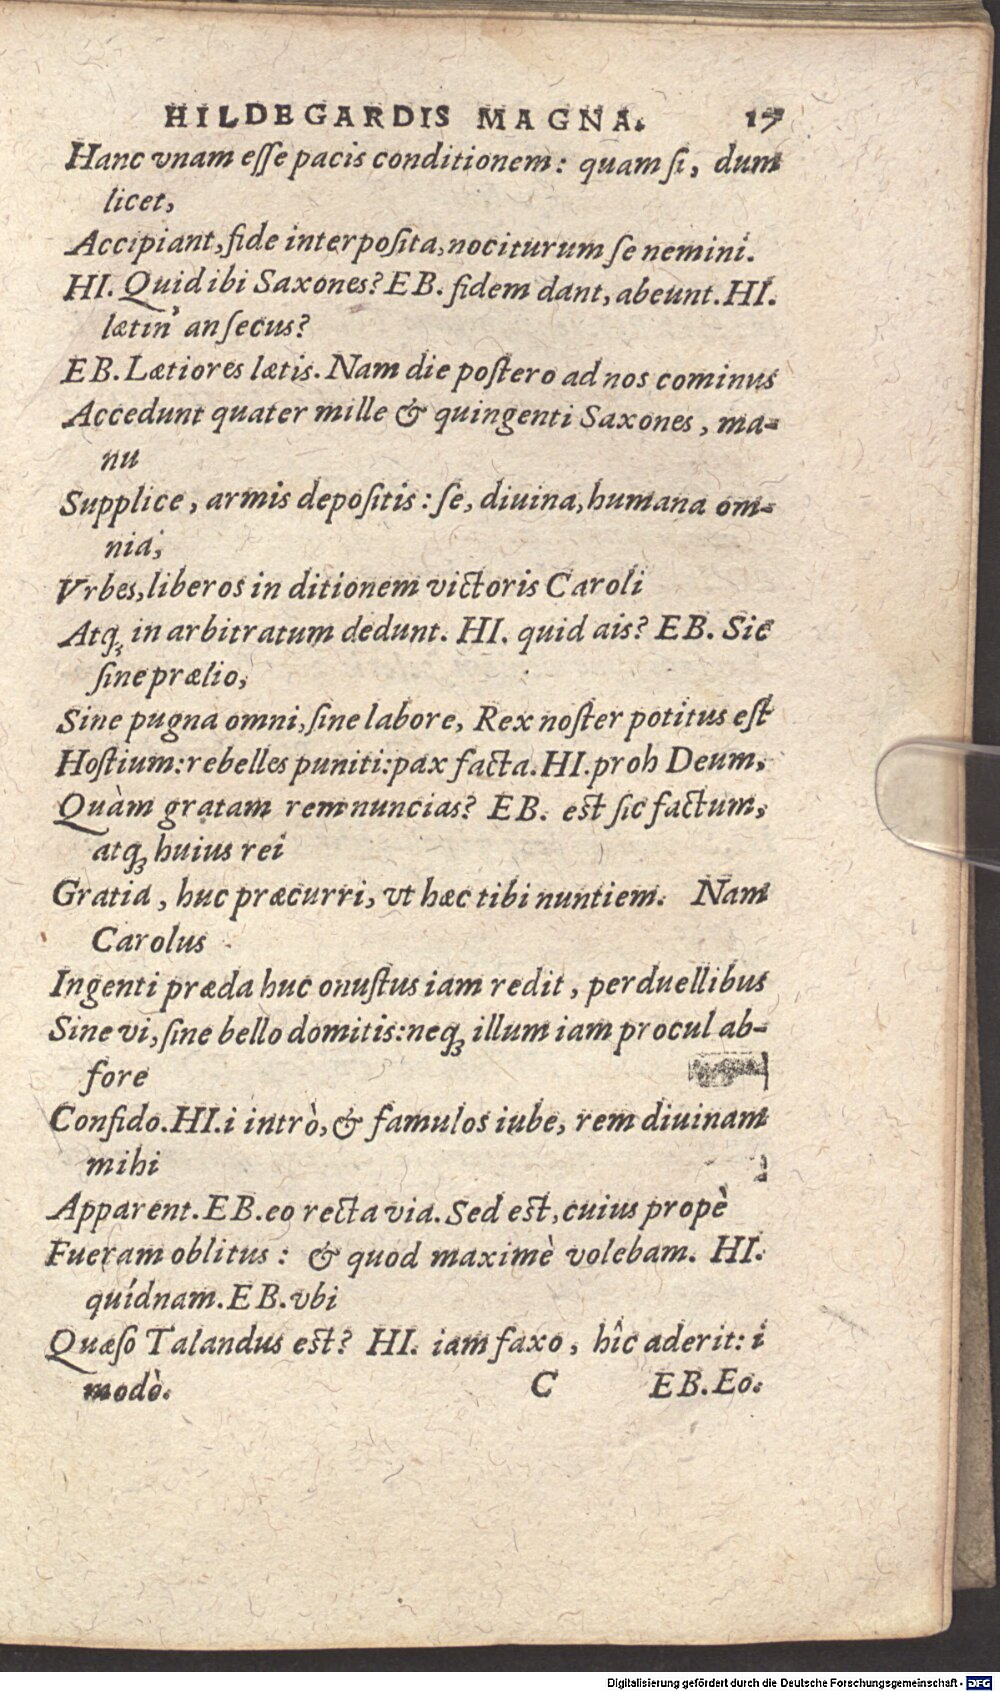 HILDEGARDIS MAGNA. 17
Hanc vnam eſſe pacis conditionem: quam ſi, dum
licet,
Accipiant, fide interpoſita, nociturum ſe nemini.
HI. Quid ibi Saxones? EB. fidem dant, abeunt. HI.
lætin' an ſecus?
EB. Lætiores lætis. Nam die poſtero ad nos cominus
Accedunt quater mille & quingenti Saxones, ma-
nu
Supplice, armis depoſitis: ſe, diuina, humana om-
nia,
Vrbes, liberos in ditionem victoris Caroli
Atq; in arbitratum dedunt. HI. quid ais? EB. Sic
ſine prælio,
Sine pugna omni, ſine labore, Rex noſter potitus eſt
Hoſtium: rebelles puniti: pax facta. HI. proh Deum,
Quàm gratam rem nuncias? EB. eſt ſic factum,
atq; huius rei
Gratia, huc præcurri, vt hæc tibi nuntiem. Nam
Carolus
Ingenti præda huc onuſtus iam redit, perduellibus
Sine vi, ſine bello domitis: neq; illum iam procul ab-
fore
Confido. HI. i intrò, & famulos iube, rem diuinam
mihi
Apparent. EB. eo recta via. Sed eſt, cuius propè
Fueram oblitus: & quod maximè volebam. HI.
quídnam. EB. vbi
Quæſo Talandus eſt? HI. iam faxo, hîc aderit: i
modò. C EB. Eo.
Digitalisierung gefördert durch die Deutsche Forschungsgemeinschaft - DFG